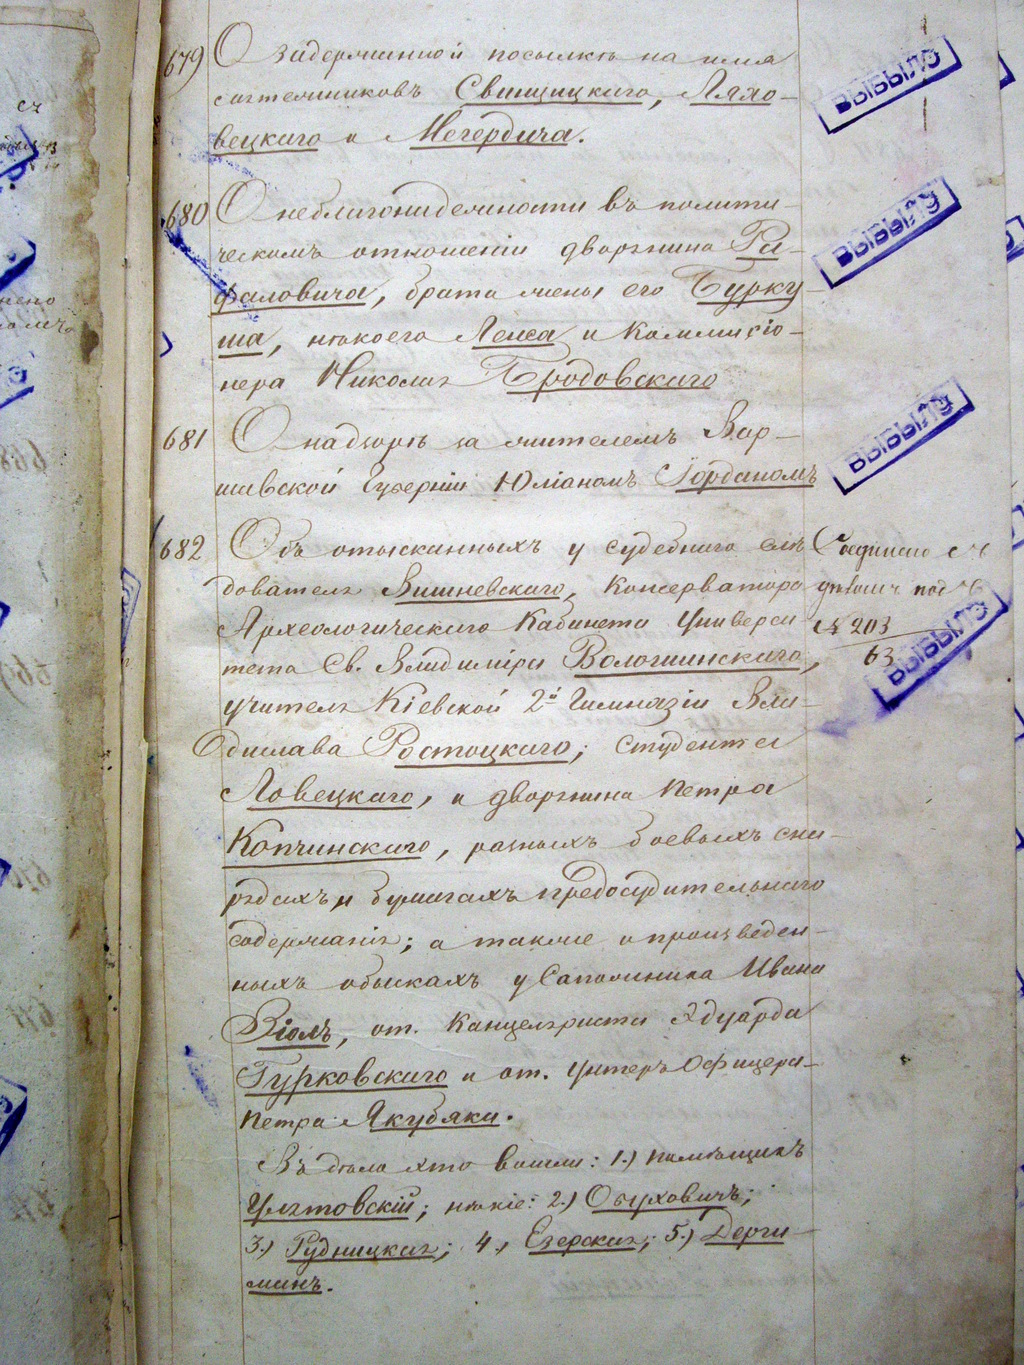 679 О задержанной посылкѣ на имя
ВЫБЫЛО
мятежниковъ Свинцицкаго, Ляхо-
вецкаго и Мегердича.
680 О неблагонадежности въ полити-
ВЫБЫЛО
ческомъ отношеніи дворянина Ра-
фаловича, брата жены его Бурку
ша, нѣкоего Лелса и Коммисіо-
нера Николая Бродовскаго
681 О надзорѣ за учителемъ Вар-
ВЫБЫЛО
шавской Губерніи Юліаномъ Іорданомъ
682 Объ отысканныхъ у судебнаго слѣ
Соединено съ
дователя Вишневскаго, Консерватора
дѣломъ под №
Археологическаго Кабинета Универси
№ 203
тета Св. Владиміра Волошинскаго,
63
ВЫБЫЛО
учителя Кіевской 2й Гимназіи Вла-
дислава Ростоцкаго; Студента
Ловецкаго, и дворянина Петра
Копчинскаго, разныхъ боевыхъ сна-
рядахъ, и бумагахъ предосудительнаго
содержанія; а также о произведен-
ныхъ обыскахъ у Сапожника Ивана
Віолъ, от. Канцеляриста Эдуарда
Гурковскаго и от. Унтеръ Офицера
Петра Якубяка.
Въ дѣла это вошли: 1.) Помѣщикъ
Улятовскій; нѣкіе: 2.) Обуховичъ;
3.) Рудницкая; 4., Езерская; 5.) Дерги-
манъ.